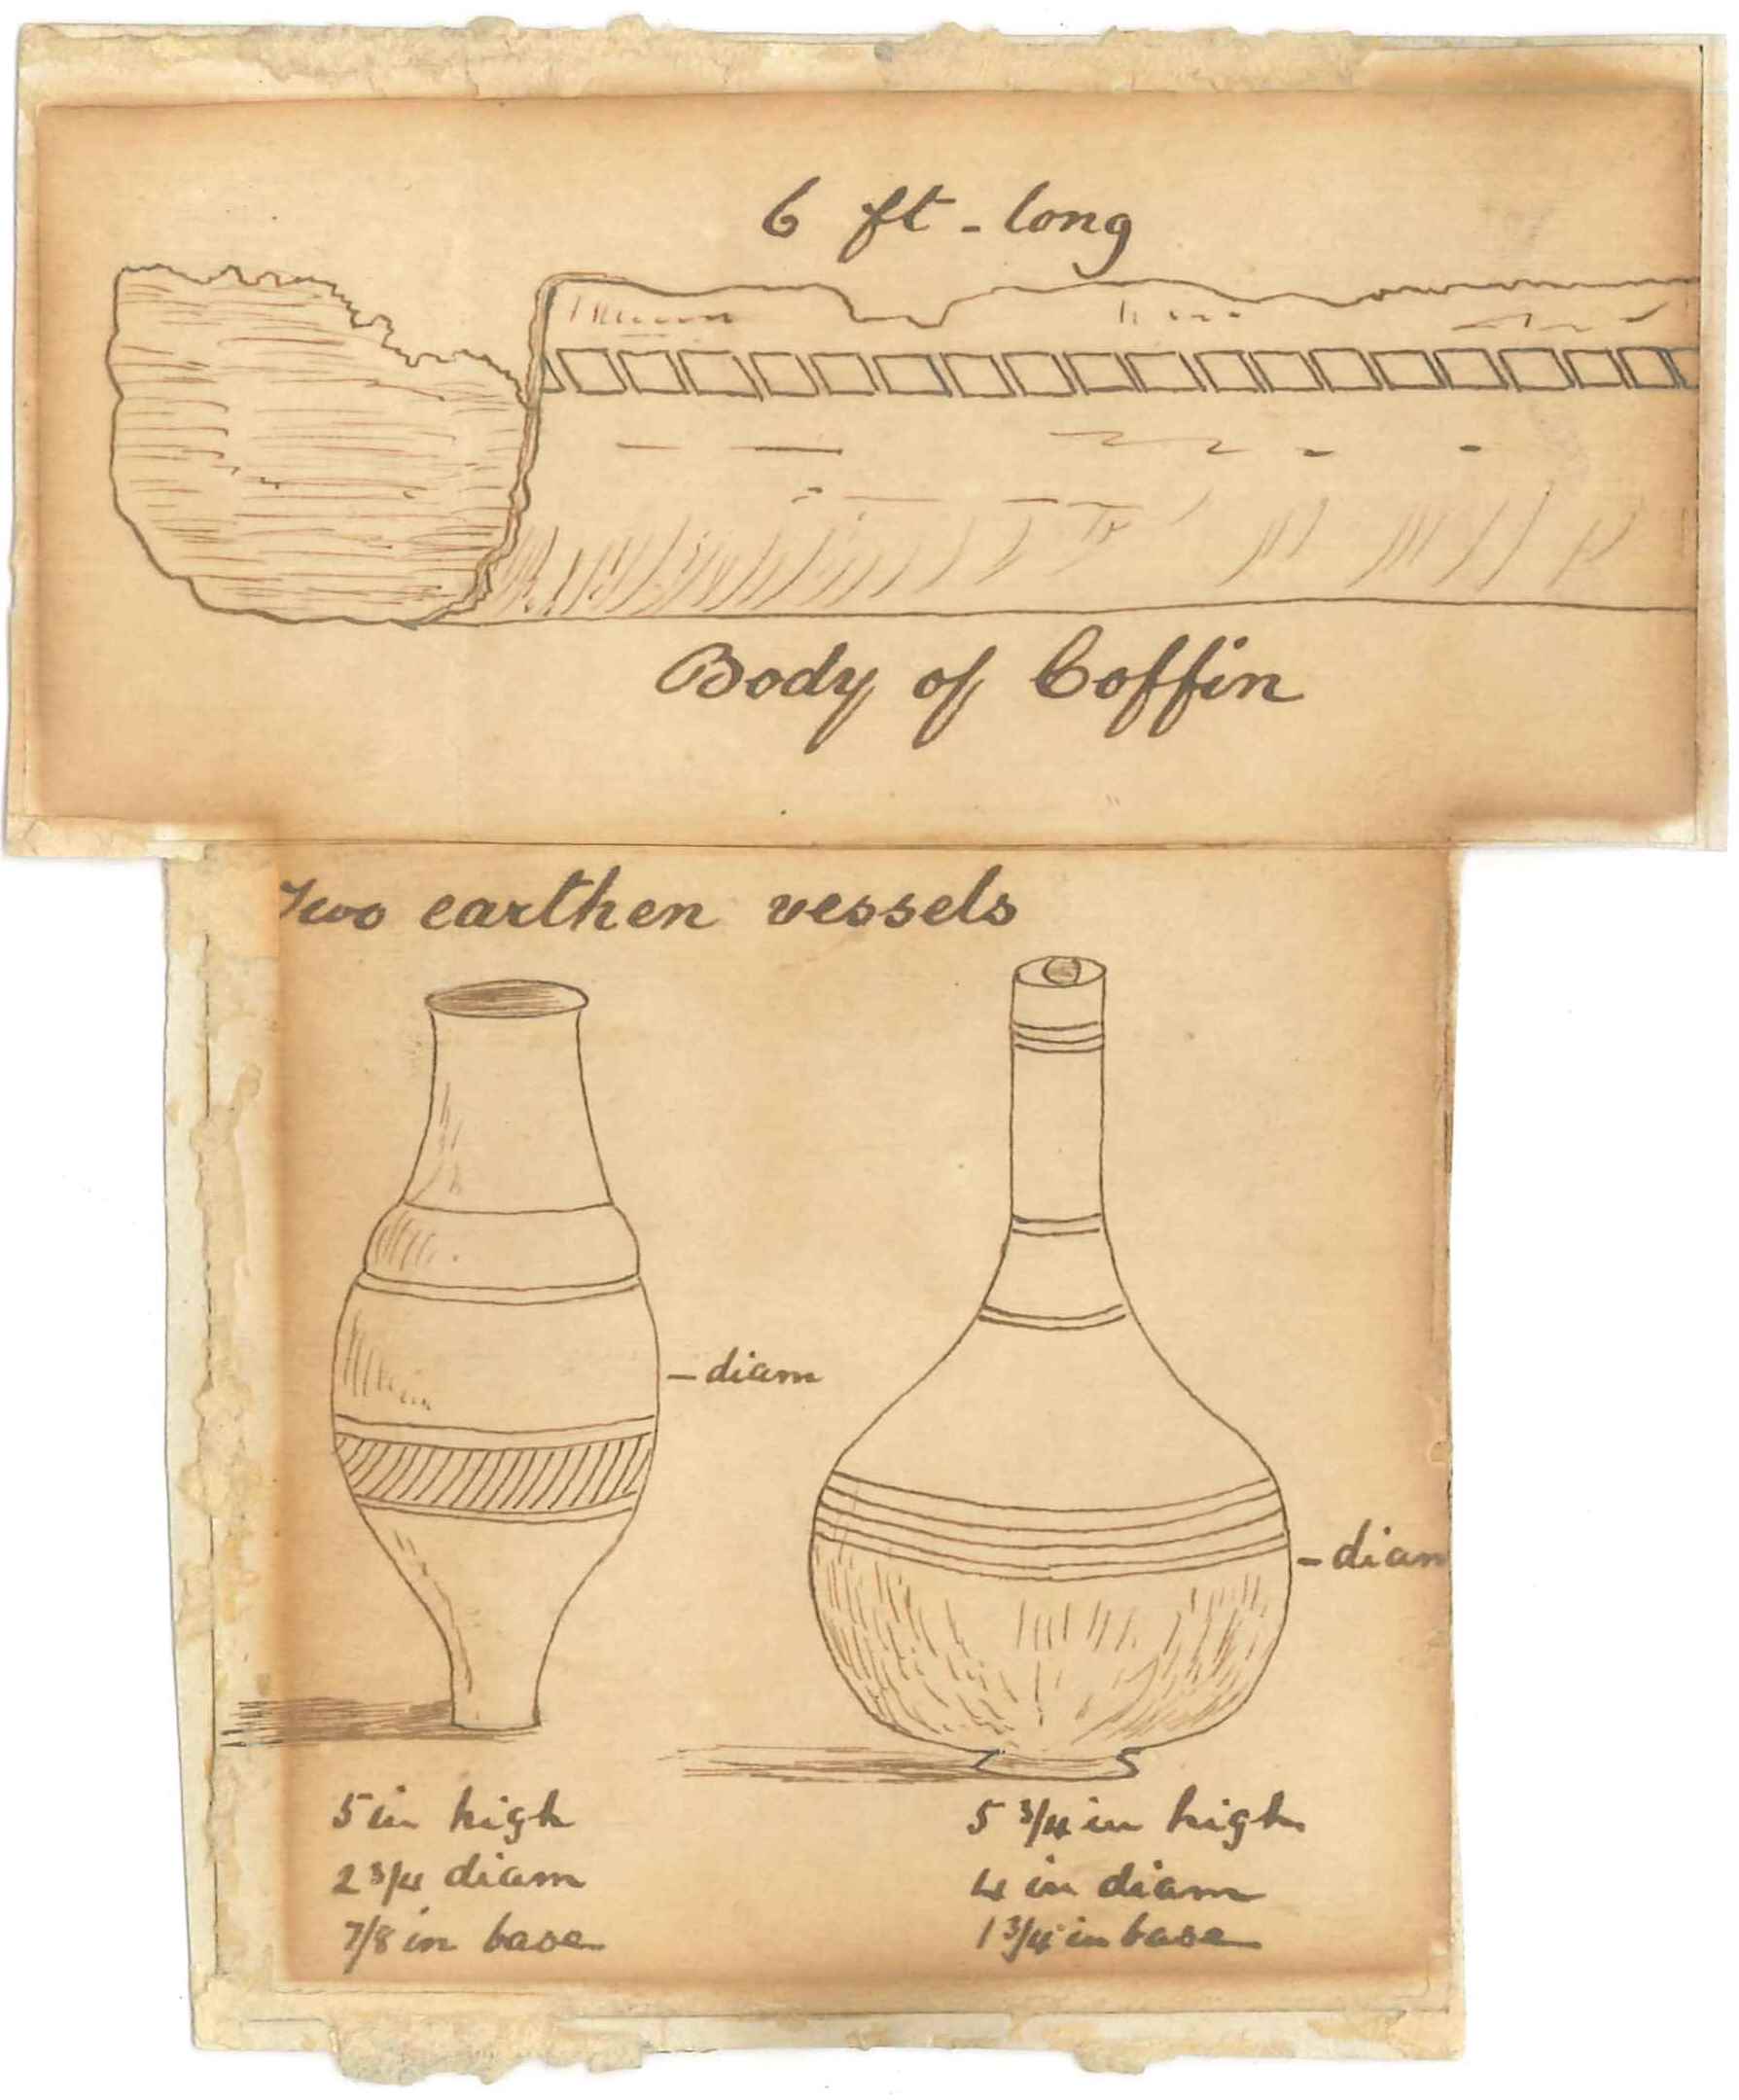 6 ft - long
Body of Coffin
Two earthen vessels
- diam
- diam
5 in high
2 3/4 diam
7/8 in base
5 3/4 in high
4 in diam
1 3/4 in base